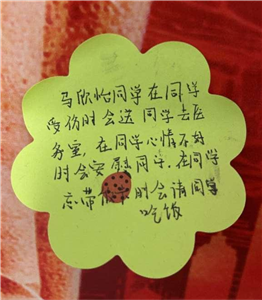 马欣怡同学在同学
受伤时会送同学去医
务室,在同学心情不好
时会安慰同学,在同学
忘带饭卡时会请同学
吃饭